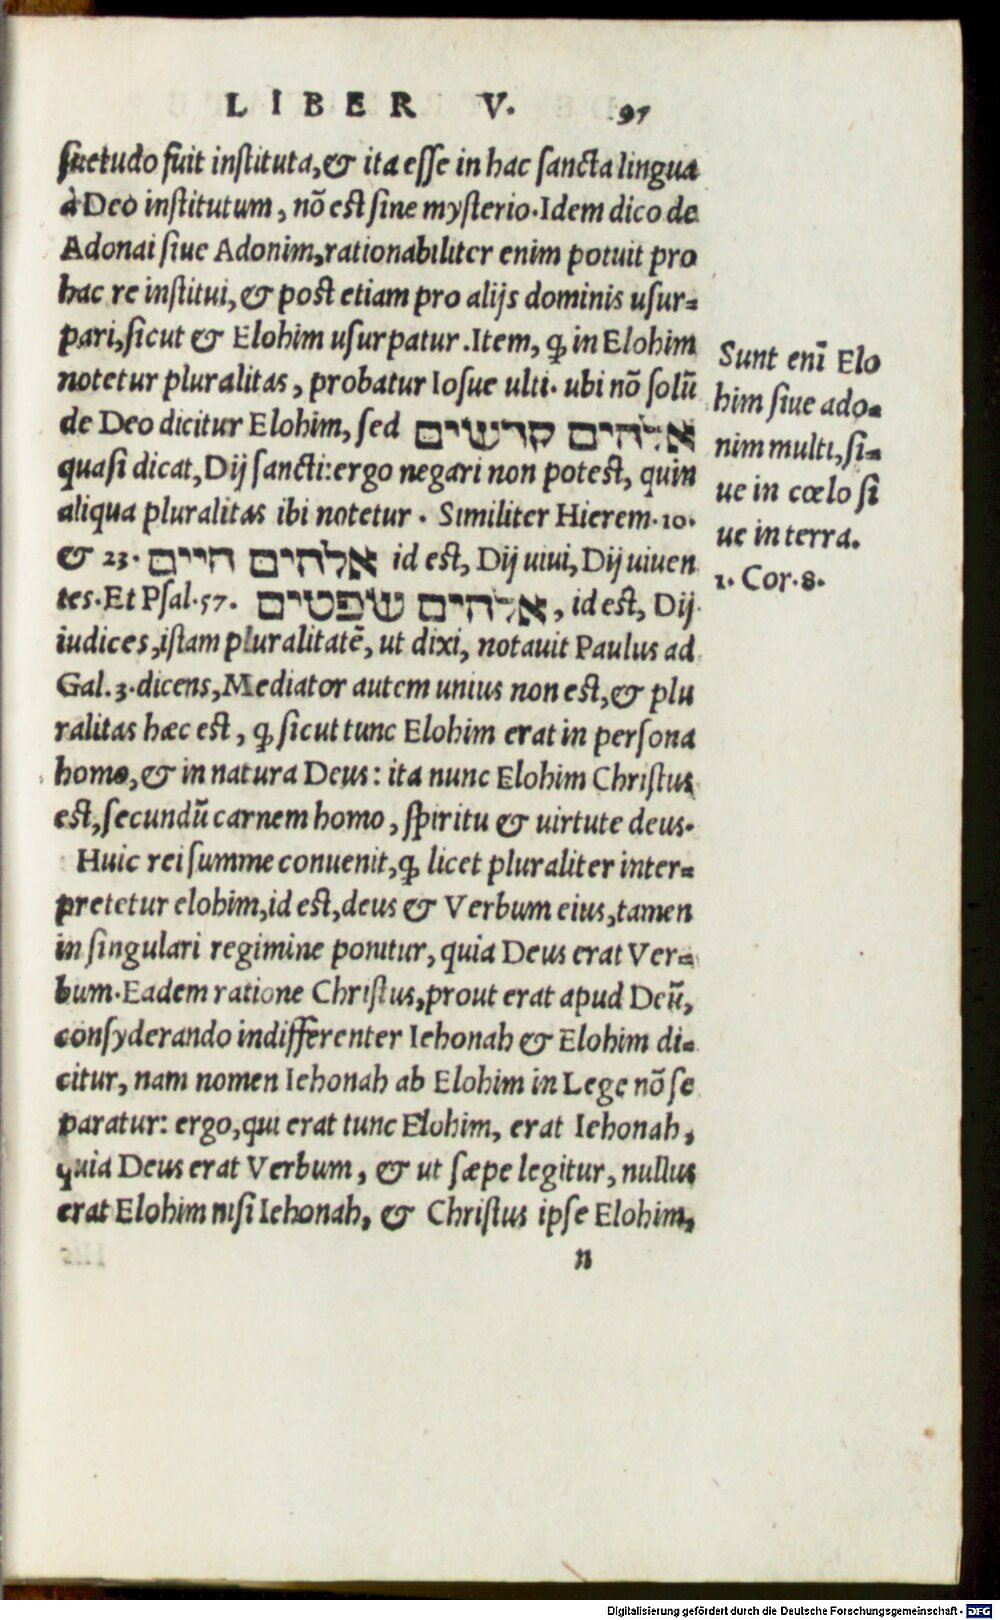 LIBER V. 97
suetudo fuit instituta, & ita esse in hac sancta lingua
à Deo institutum, nõ est sine mysterio. Idem dico de
Adonai siue Adonim, rationabiliter enim potuit pro
hac re institui, & post etiam pro alijs dominis usur=
pari, sicut & Elohim usurpatur. Item, ꝙ in Elohim
notetur pluralitas, probatur Iosue ulti. ubi nõ solũ
de Deo dicitur Elohim, sed אלהים קדשים
quasi dicat, Dij sancti: ergo negari non potest, quin
aliqua pluralitas ibi notetur. Similiter Hierem. 10.
& 23. אלהים חיים id est, Dij uiui, Dij uiuen
tes. Et Psal. 57. אלהים שפטים, id est, Dij
iudices, istam pluralitatẽ, ut dixi, notauit Paulus ad
Gal. 3. dicens, Mediator autem unius non est, & plu
ralitas hæc est, ꝙ sicut tunc Elohim erat in persona
homo, & in natura Deus: ita nunc Elohim Christus
est, secundũ carnem homo, spiritu & uirtute deus.
Huic rei summe conuenit, ꝙ licet pluraliter inter=
pretetur elohim, id est, deus & Verbum eius, tamen
in singulari regimine ponitur, quia Deus erat Ver=
bum. Eadem ratione Christus, prout erat apud Deũ,
consyderando indifferenter Iehouah & Elohim di=
citur, nam nomen Iehouah ab Elohim in Lege nõ se
paratur: ergo, qui erat tunc Elohim, erat Iehouah,
quia Deus erat Verbum, & ut sæpe legitur, nullus
erat Elohim nisi Iehouah, & Christus ipse Elohim,
n
Sunt enĩ Elo
him siue ado=
nim multi, si=
ue in cœlo si
ue in terra.
1. Cor. 8.
Digitalisierung gefördert durch die Deutsche Forschungsgemeinschaft - DFG